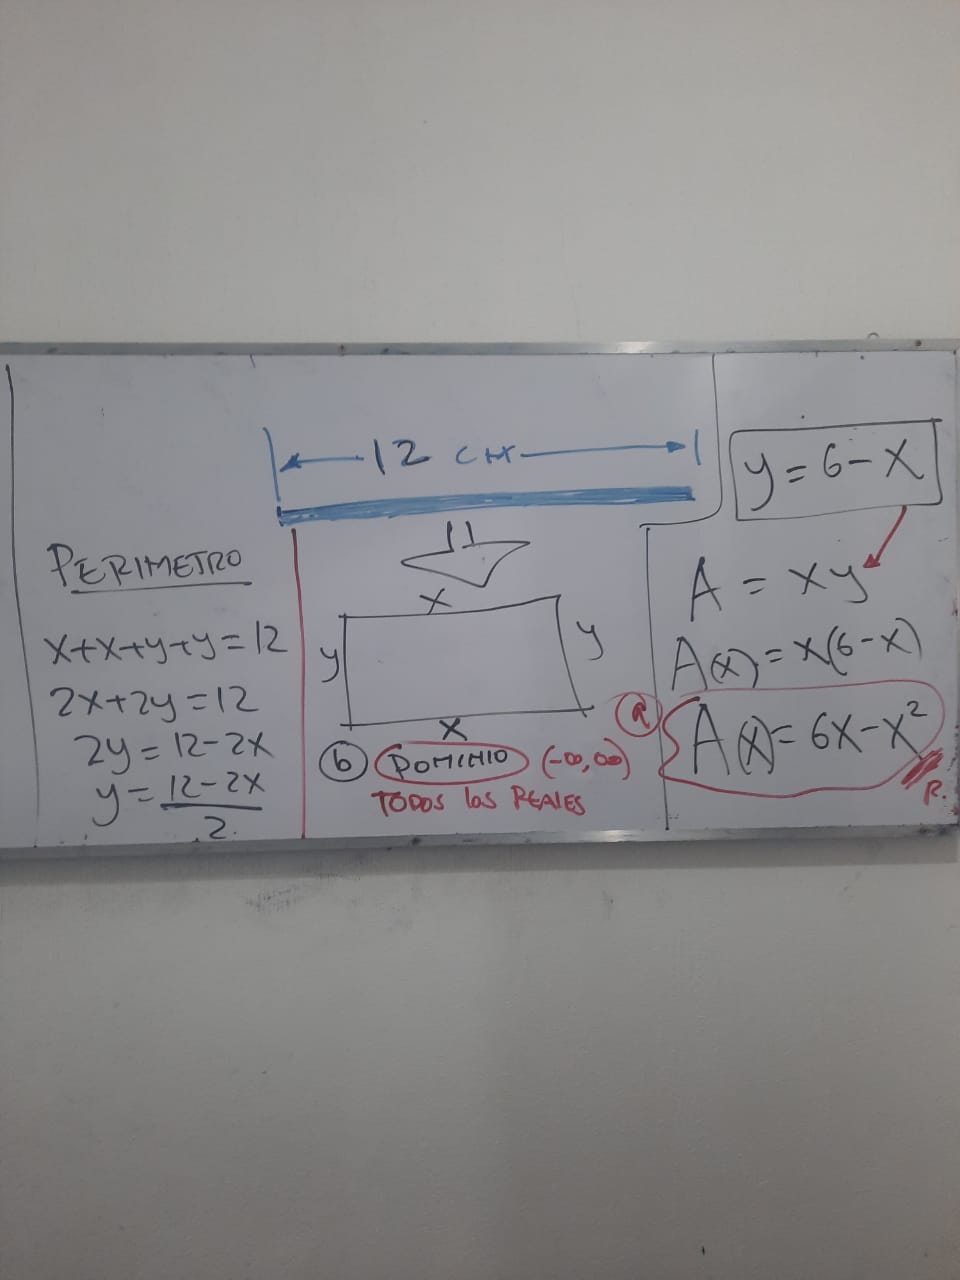 12 cm
PERIMETRO
x+x+y+y=12
2x+2y=12
2y=12-2x
y=12-2x
2
x
y
y
x
b DOMINIO (-∞,∞)
TODOS los REALES
y=6-x
A=xy
A(x)=x(6-x)
a A(x)=6x-x²
R.